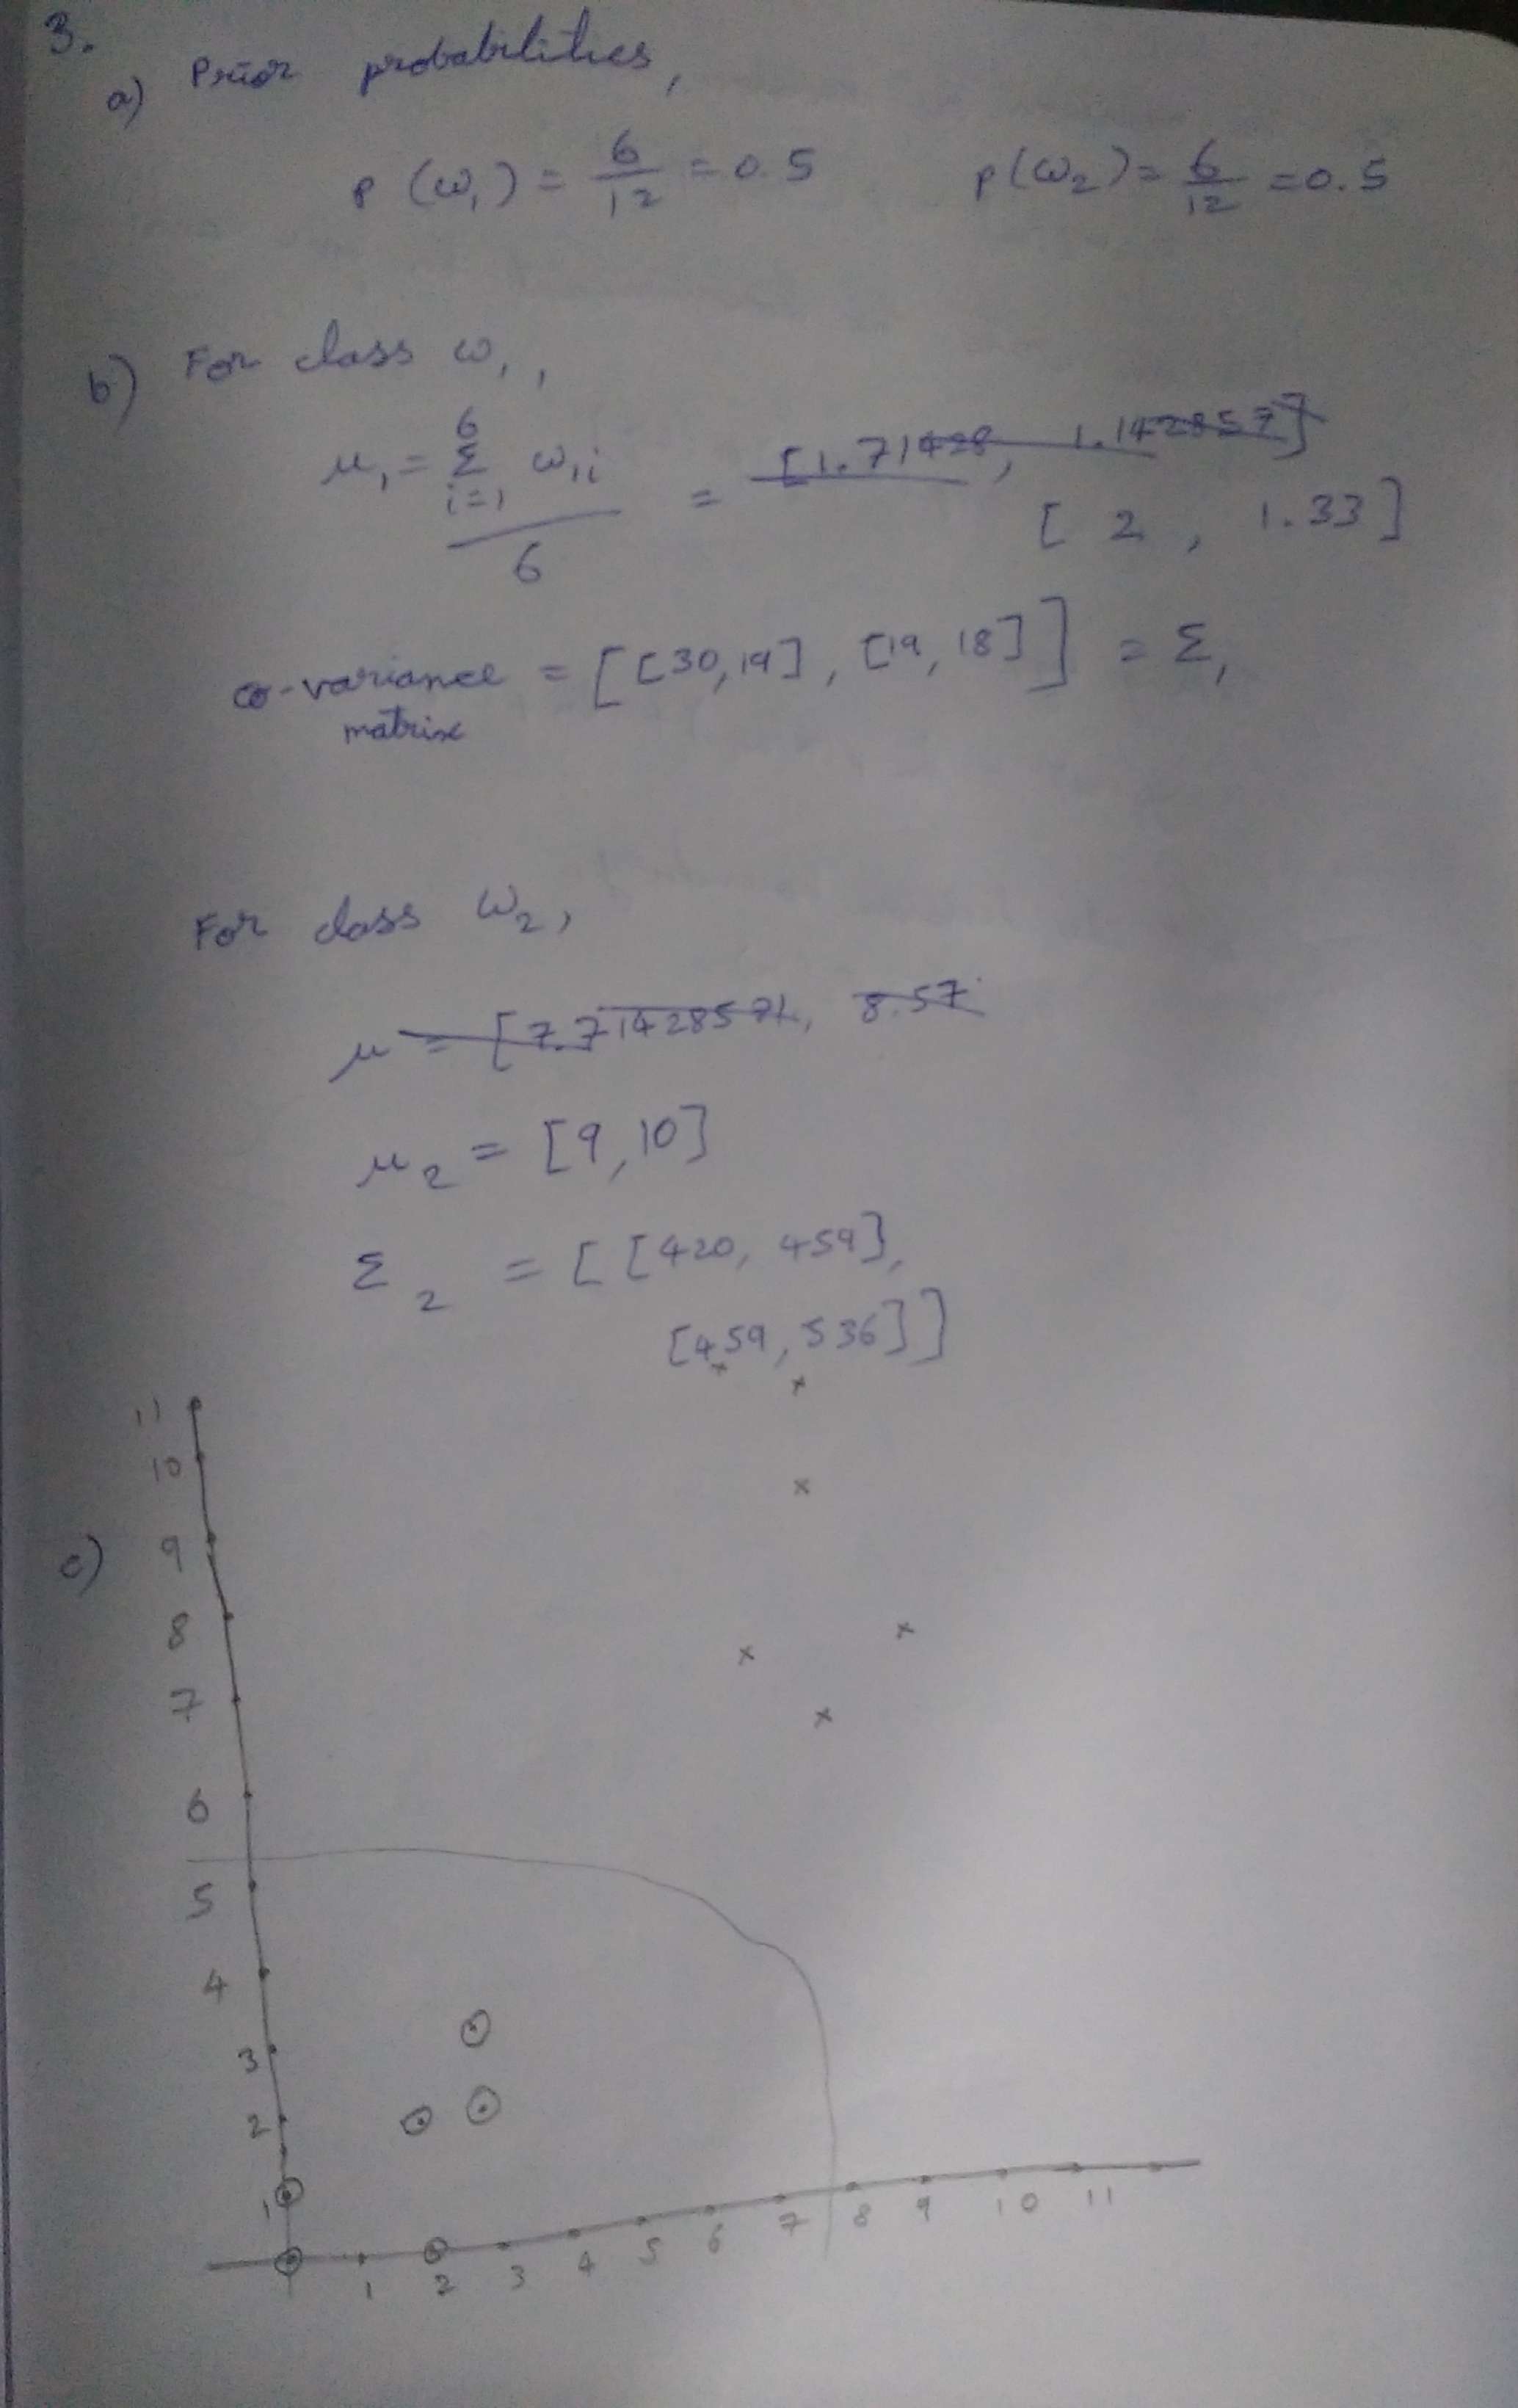 3.
a) Prior probabilities,
P(ω₁) = 6/12 = 0.5 P(ω₂) = 6/12 = 0.5
b) For class ω₁,
μ₁ = Σ_{i=1}^{6} ω₁ᵢ / 6 = [1.71428, 1.142857]
[2, 1.33]
co-variance matrix = [[30,19], [19,18]] = Σ₁
For class ω₂,
μ = [7.71428571, 8.57
μ₂ = [9,10]
Σ₂ = [[420, 459],
[459, 536]]
c)
11
10
9
8
7
6
5
4
3
2
1
1 2 3 4 5 6 7 8 9 10 11